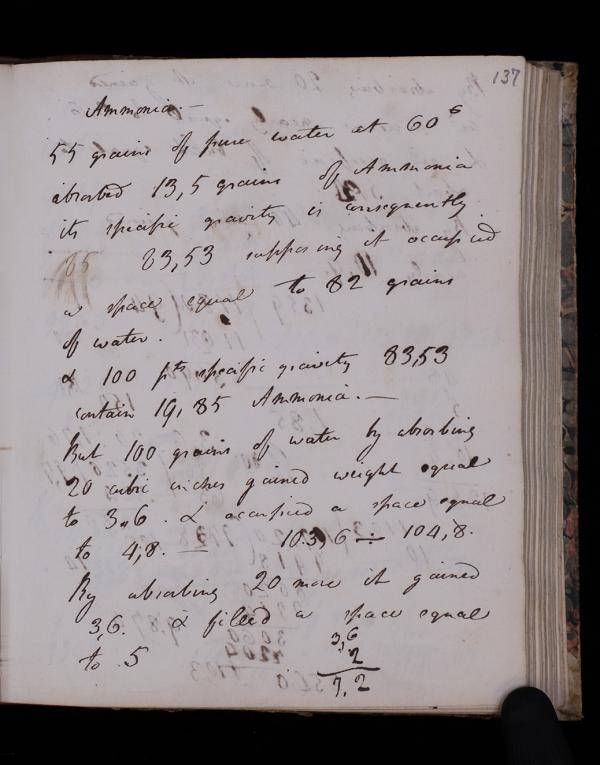 137
Ammonia.—
55 grains of pure water at 60°
absorbed 13,5 grains of Ammonia
its specific gravity is consequently
83,53 supposing it occupied
a space equal to 82 grains
of water.
& 100 pts specific gravity 83,53
contain 19,85 Ammonia.—
But 100 grains of water by absorbing
20 cubic inches gained weight equal
to 3,6. & occupied a space equal
to 4,8. — 103,6 ÷ 104,8.
By absorbing 20 more it gained
3,6. & filled a space equal
to .5
3,6
2
7,2